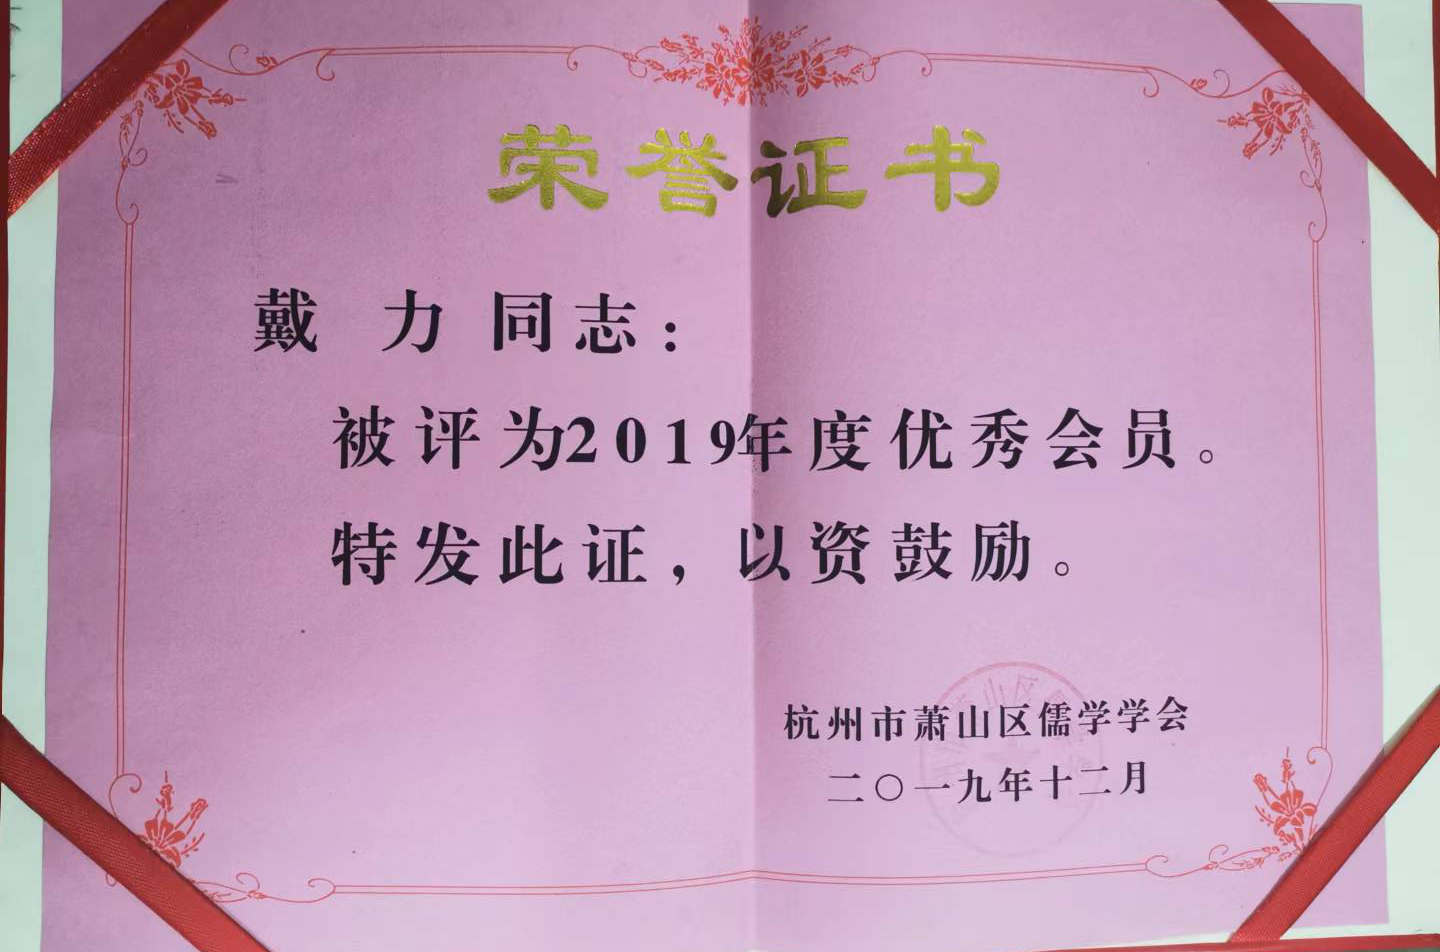 荣誉证书
戴 力 同志：
被评为2019年度优秀会员。
特发此证，以资鼓励。
杭州市萧山区儒学学会
二〇一九年十二月